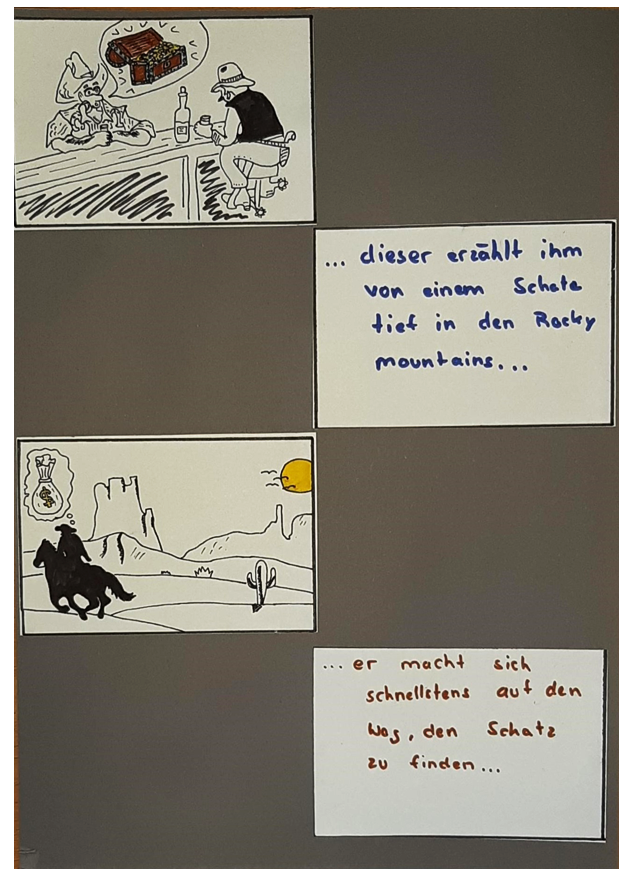 ... dieser erzählt ihm
von einem Schatz
tief in den Rocky
mountains...
$
... er macht sich
schnellstens auf den
Weg, den Schatz
zu finden...